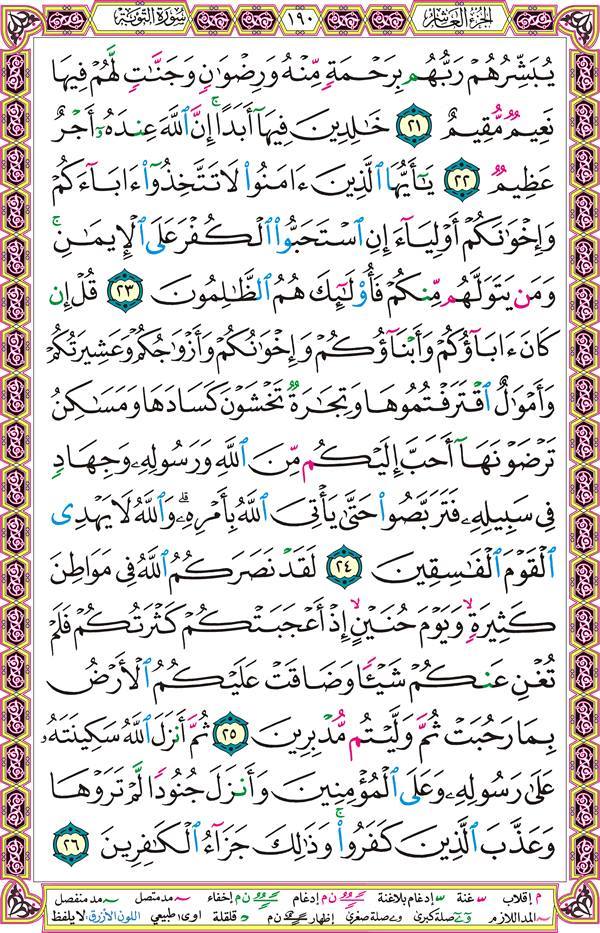 سورة التوبة ١٩٠ الجزء العاشر
يُبَشِّرُهُمْ رَبُّهُم بِرَحْمَةٍ مِّنْهُ وَرِضْوَٰنٍ وَجَنَّٰتٍ لَّهُمْ فِيهَا
نَعِيمٌ مُّقِيمٌ ٢١ خَٰلِدِينَ فِيهَآ أَبَدًا ۚ إِنَّ ٱللَّهَ عِندَهُۥٓ أَجْرٌ
عَظِيمٌ ٢٢ يَٰٓأَيُّهَا ٱلَّذِينَ ءَامَنُوا۟ لَا تَتَّخِذُوٓا۟ ءَابَآءَكُمْ
وَإِخْوَٰنَكُمْ أَوْلِيَآءَ إِنِ ٱسْتَحَبُّوا۟ ٱلْكُفْرَ عَلَى ٱلْإِيمَٰنِ ۚ
وَمَن يَتَوَلَّهُم مِّنكُمْ فَأُو۟لَٰٓئِكَ هُمُ ٱلظَّٰلِمُونَ ٢٣ قُلْ إِن
كَانَ ءَابَآؤُكُمْ وَأَبْنَآؤُكُمْ وَإِخْوَٰنُكُمْ وَأَزْوَٰجُكُمْ وَعَشِيرَتُكُمْ
وَأَمْوَٰلٌ ٱقْتَرَفْتُمُوهَا وَتِجَٰرَةٌ تَخْشَوْنَ كَسَادَهَا وَمَسَٰكِنُ
تَرْضَوْنَهَآ أَحَبَّ إِلَيْكُم مِّنَ ٱللَّهِ وَرَسُولِهِۦ وَجِهَادٍ
فِى سَبِيلِهِۦ فَتَرَبَّصُوا۟ حَتَّىٰ يَأْتِىَ ٱللَّهُ بِأَمْرِهِۦ ۗ وَٱللَّهُ لَا يَهْدِى
ٱلْقَوْمَ ٱلْفَٰسِقِينَ ٢٤ لَقَدْ نَصَرَكُمُ ٱللَّهُ فِى مَوَاطِنَ
كَثِيرَةٍ ۙ وَيَوْمَ حُنَيْنٍ ۙ إِذْ أَعْجَبَتْكُمْ كَثْرَتُكُمْ فَلَمْ
تُغْنِ عَنكُمْ شَيْـًٔا وَضَاقَتْ عَلَيْكُمُ ٱلْأَرْضُ
بِمَا رَحُبَتْ ثُمَّ وَلَّيْتُم مُّدْبِرِينَ ٢٥ ثُمَّ أَنزَلَ ٱللَّهُ سَكِينَتَهُۥ
عَلَىٰ رَسُولِهِۦ وَعَلَى ٱلْمُؤْمِنِينَ وَأَنزَلَ جُنُودًا لَّمْ تَرَوْهَا
وَعَذَّبَ ٱلَّذِينَ كَفَرُوا۟ ۚ وَذَٰلِكَ جَزَآءُ ٱلْكَٰفِرِينَ ٢٦
م إقلاب غنة إدغام بلاغنة ن م إدغام ن م إخفاء مد متصل مد منفصل
المد اللازم صلة كبرى صلة صغرى إظهار ن م قلقلة اوى ا طبيعي اللون الأزرق: لا يلفظ